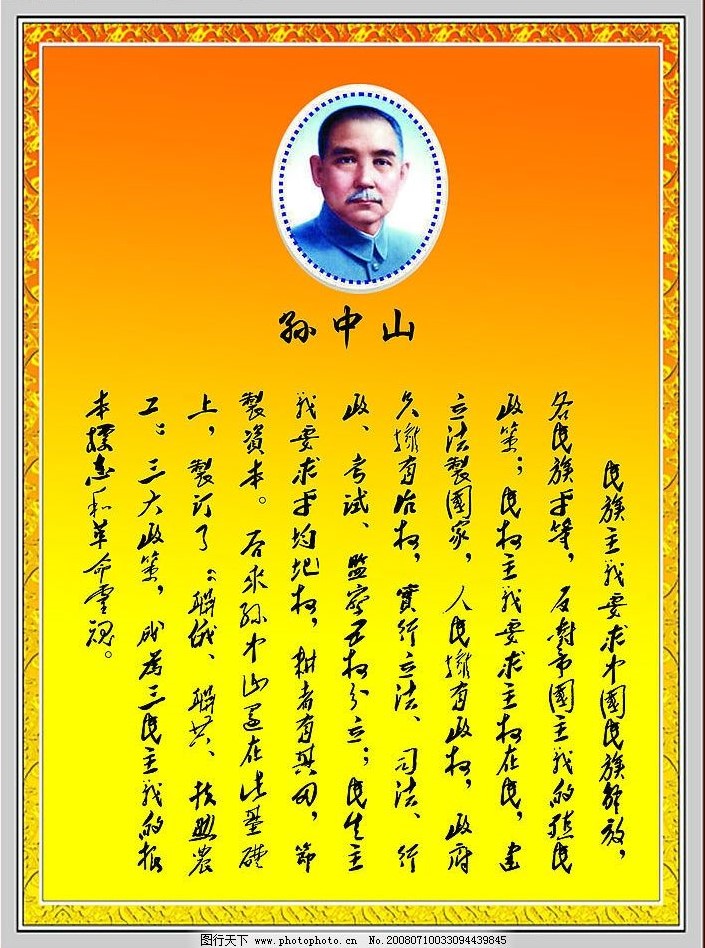 孫中山
民族主義要求中國民族解放，
各民族平等，反對帝國主義的殖民
政策；民权主義要求主权在民，建
立法製國家，人民擁有政权，政府
只擁有治权，實行立法、司法、行
政、考試、監察五权分立；民生主
義要求平均地权，耕者有其田，節
製資本。后來孫中山還在此基礎
上，製訂了“聯俄、聯共、扶助農
工”三大政策，成為三民主義的根
本標志和革命靈魂。
图行天下 www.photophoto.cn No.20080710033094439845